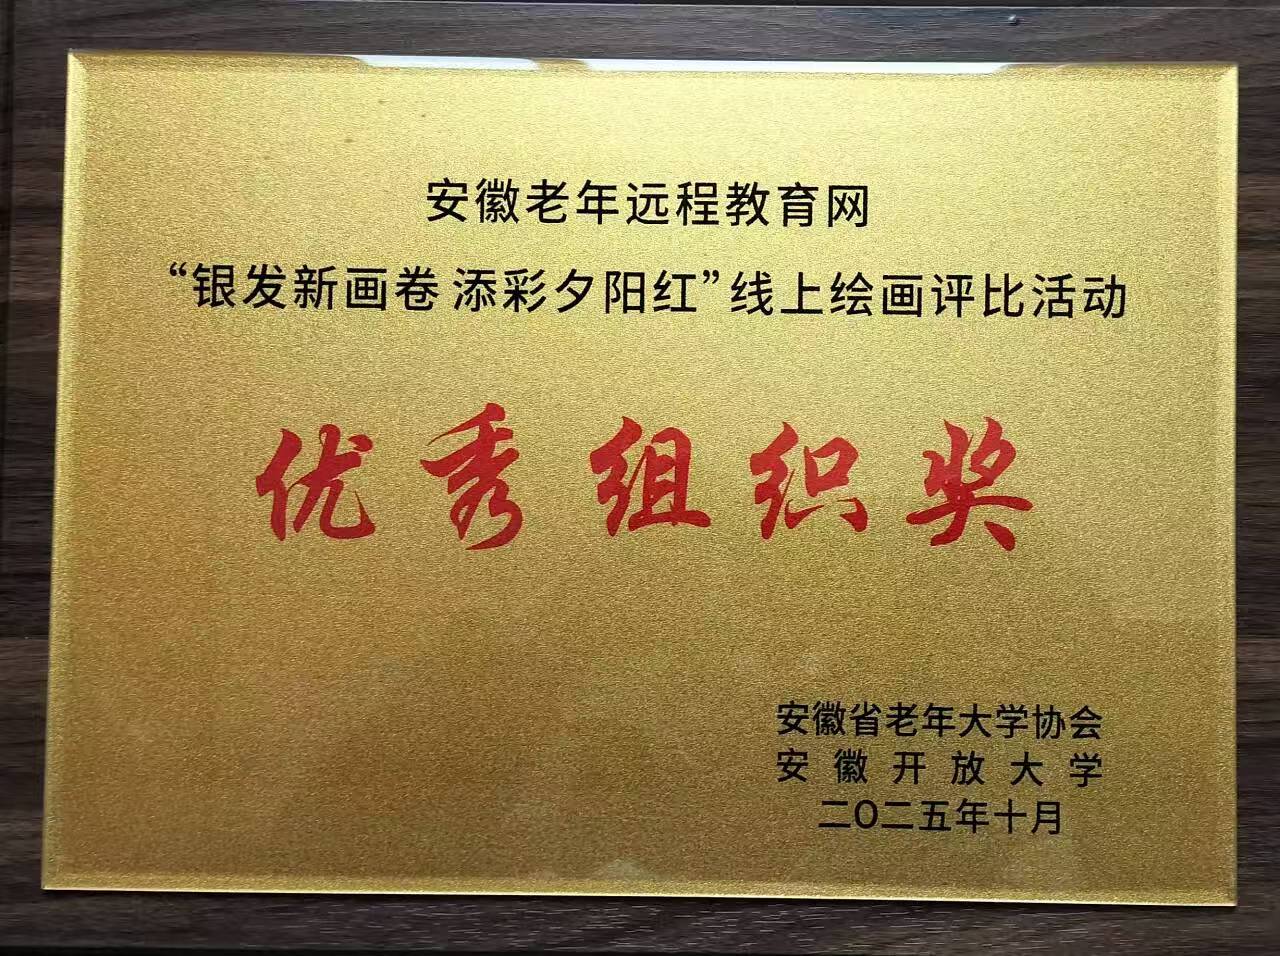 安徽老年远程教育网
“银发新画卷 添彩夕阳红”线上绘画评比活动
优秀组织奖
安徽省老年大学协会
安徽开放大学
二〇二五年十月